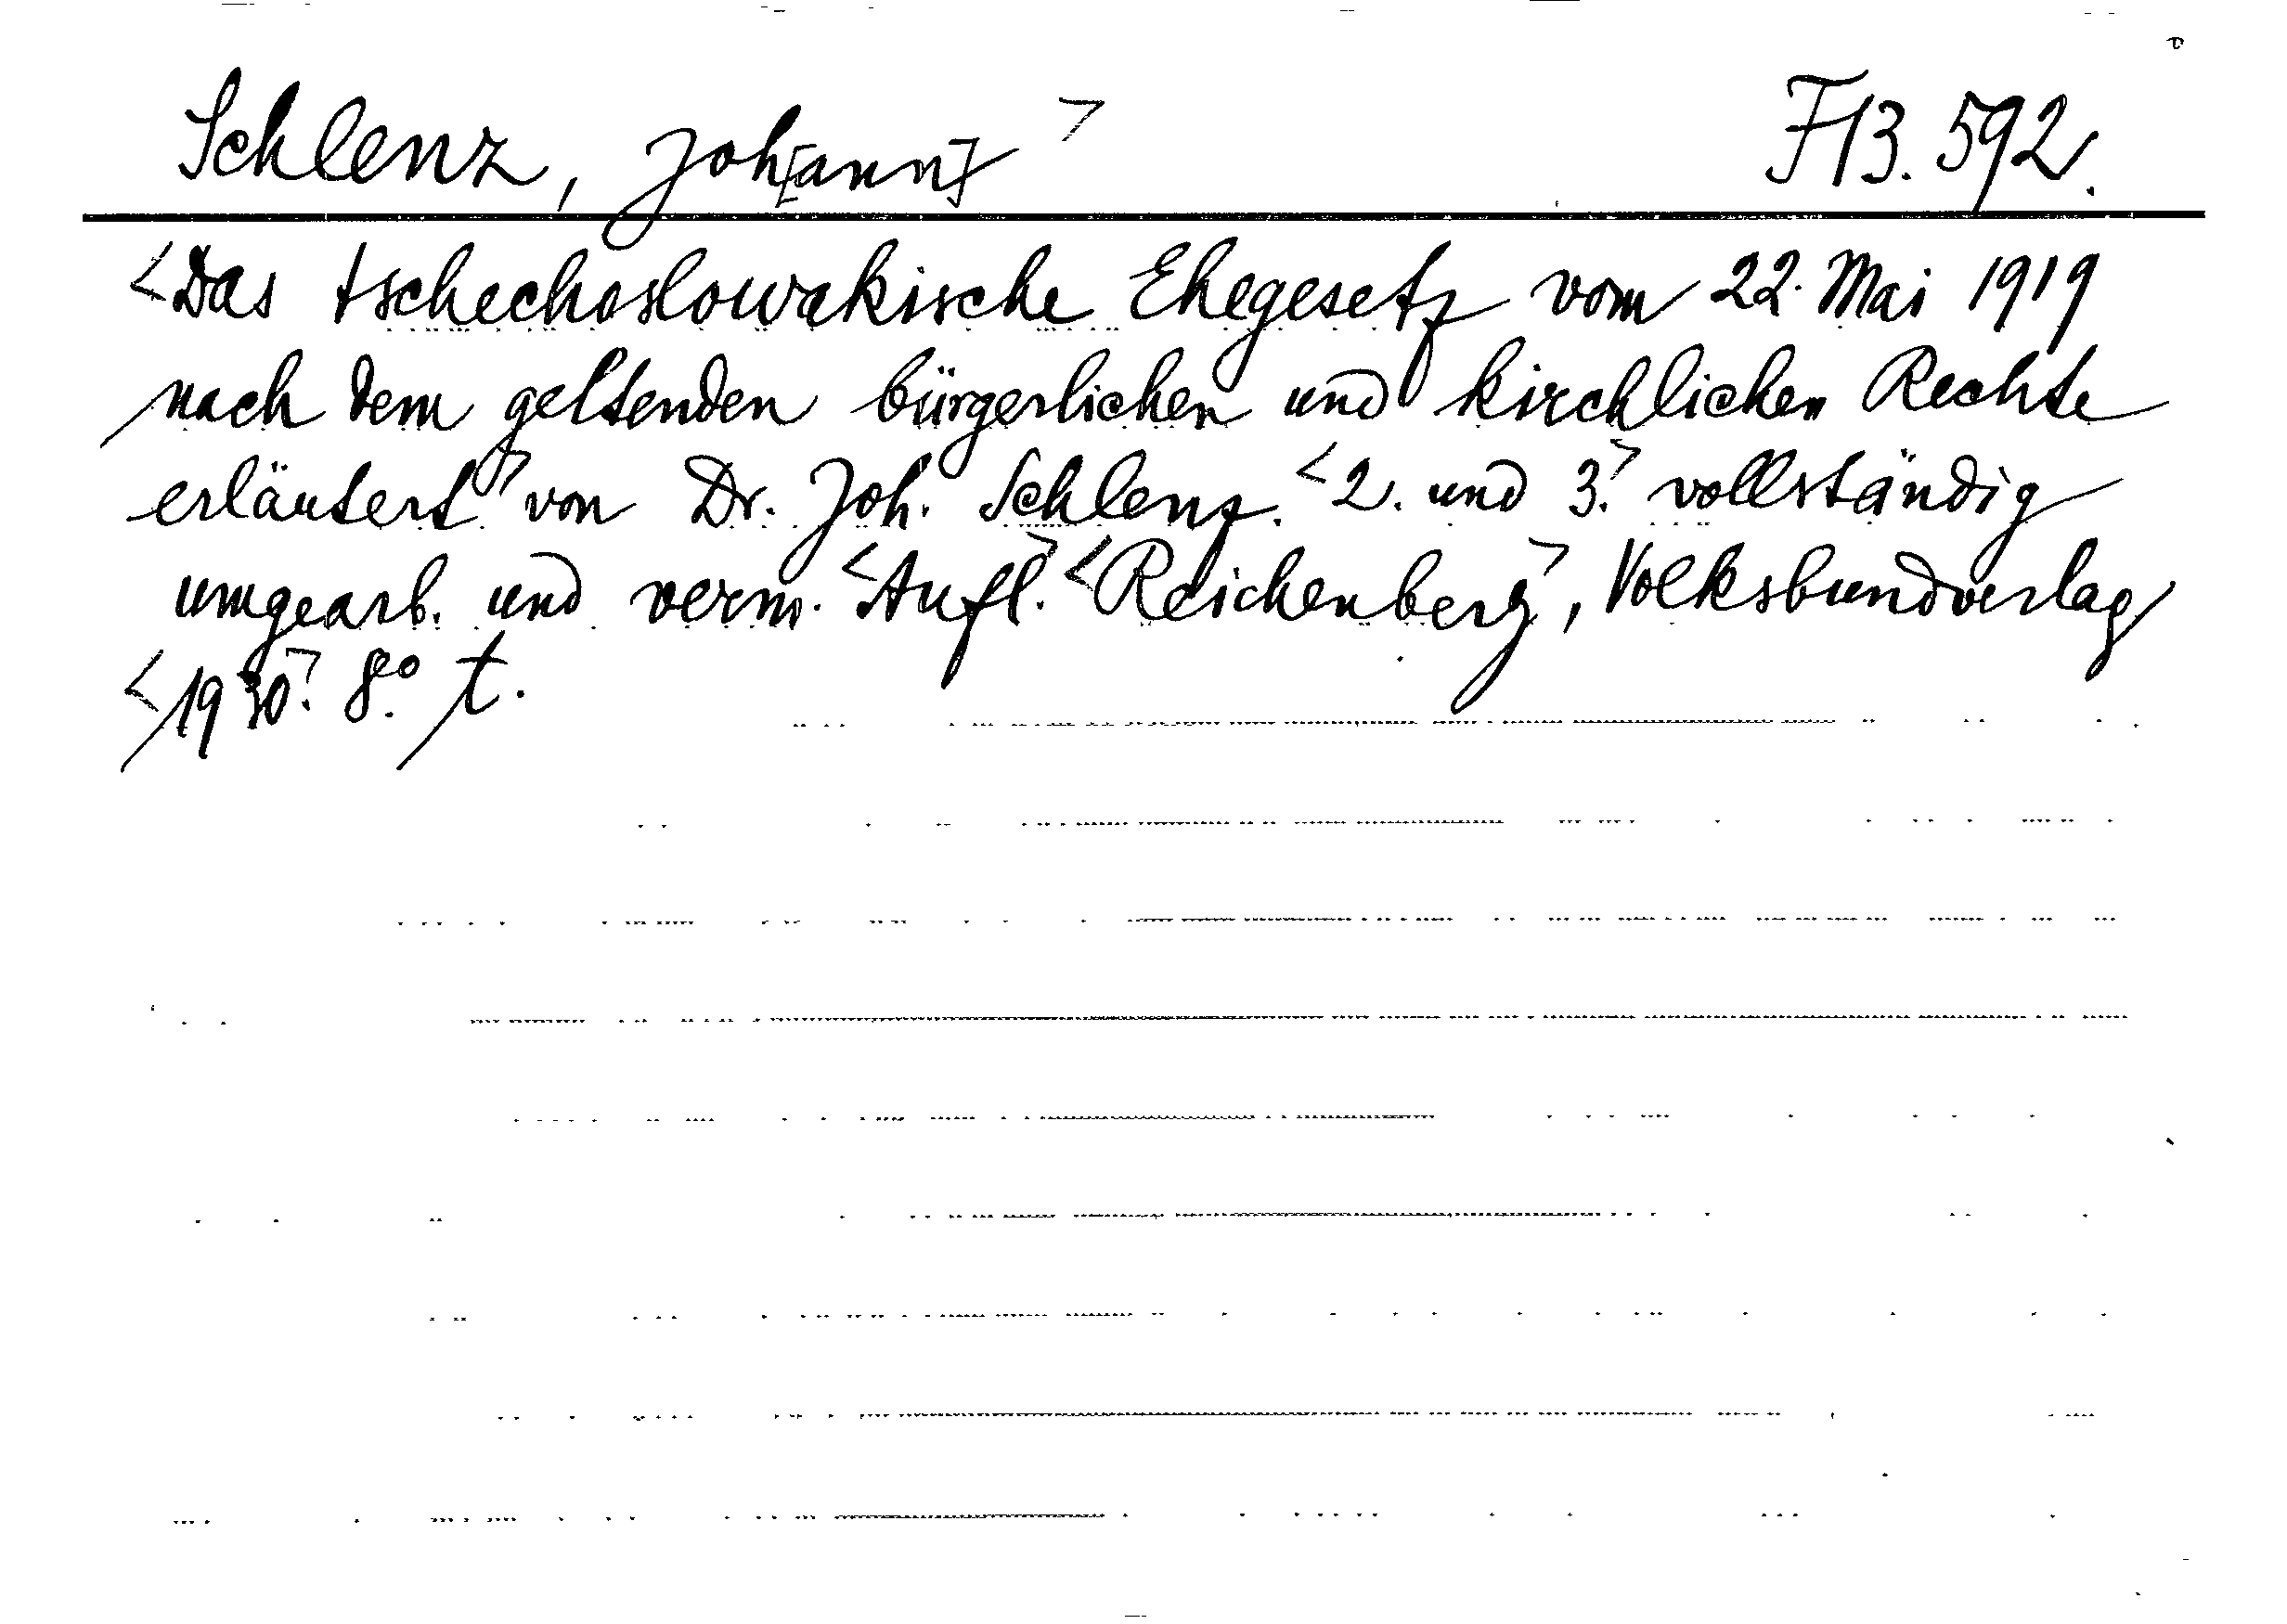 Schlenz, Joh[ann]> F13.592.
<Das tschechoslowakische Ehegesetz vom 22. Mai 1919
nach dem geltenden bürgerlichen und kirchlichen Rechte
erläutert> von Dr. Joh. Schlenz. <2. und 3.> vollständig
umgearb. und verm. <Aufl.> <Reichenberg>, Volksbundverlag
<1930>. 8° t.